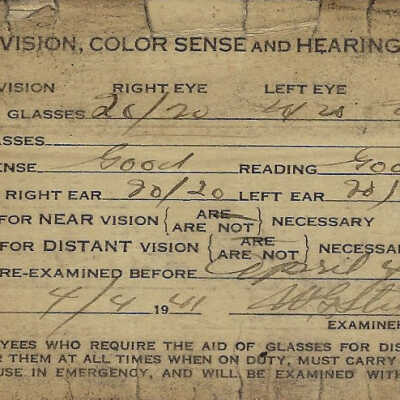 VISION, COLOR SENSE AND HEARING
VISION RIGHT EYE LEFT EYE
GLASSES 20/20
ASSES
ENSE Good READING Goo
RIGHT EAR 20/20 LEFT EAR 20/
FOR NEAR VISION {ARE ARE NOT} NECESSARY
FOR DISTANT VISION {ARE ARE NOT} NECESSA
RE-EXAMINED BEFORE April 4
4/4 1941
EXAMINER
YEES WHO REQUIRE THE AID OF GLASSES FOR DIS
R THEM AT ALL TIMES WHEN ON DUTY, MUST CARRY
USE IN EMERGENCY, AND WILL BE EXAMINED WITH